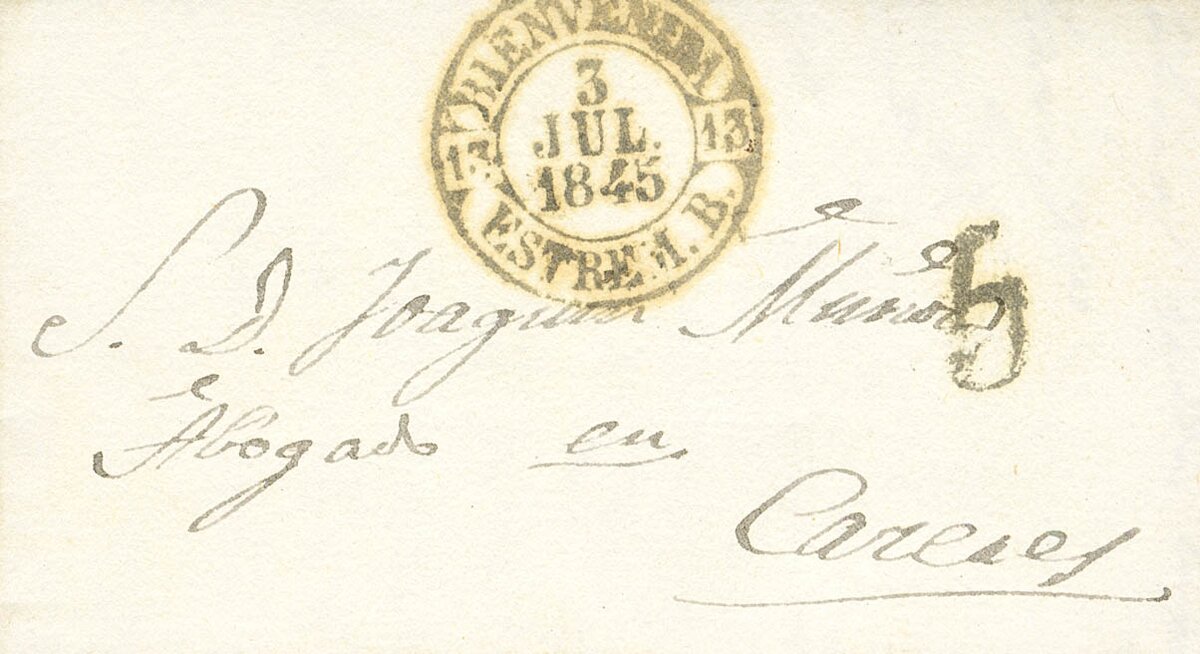 BIENVENIDA
3
JUL.
1845
13 13
ESTREM. B.
S. D. Joaquin Muñoz
Abogado en
Cazeres